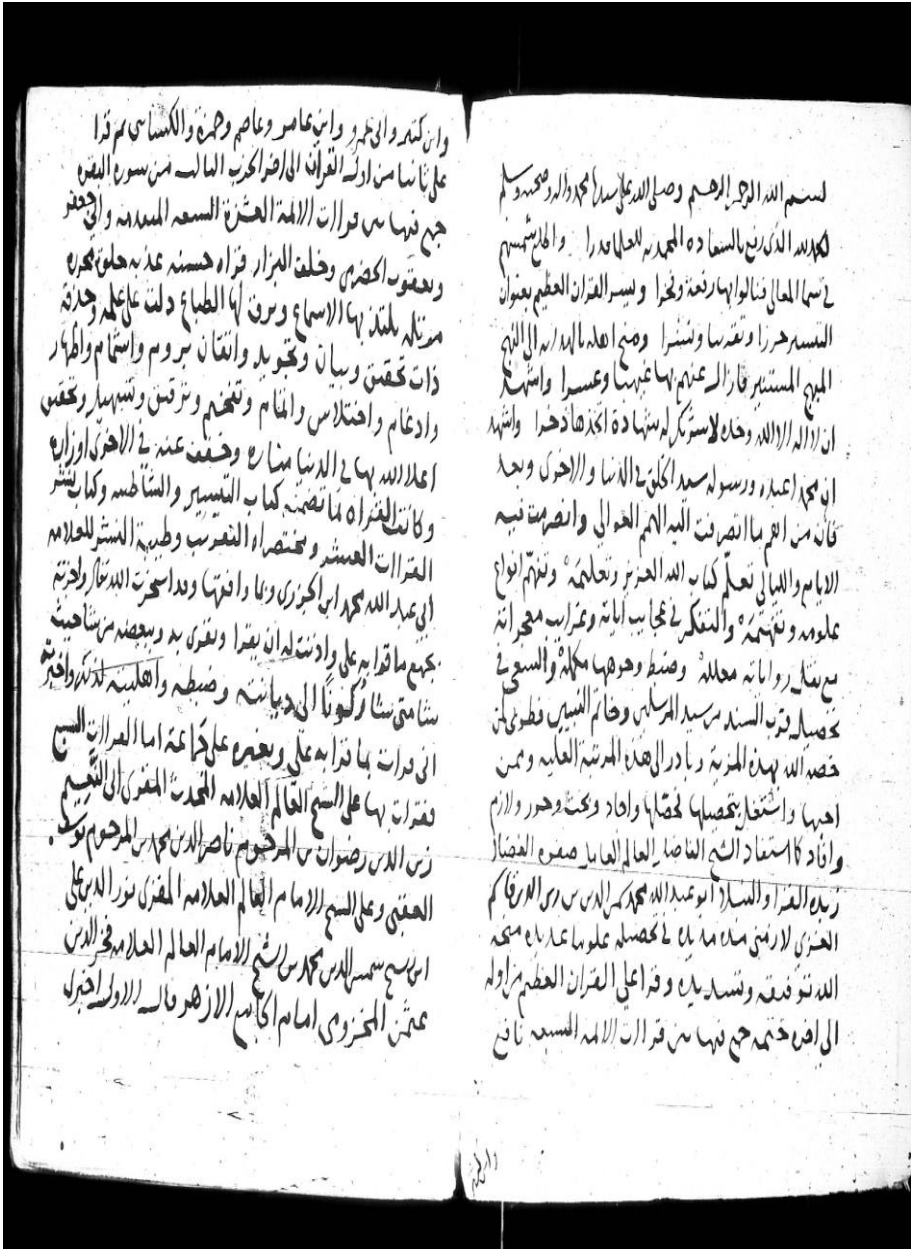 بسم الله الرحمن الرحيم وصلى الله على سيدنا محمد واله وصحبه وسلم
الحمد لله الذي رفع بالسعادة المحمدية للعلما قدرا واطلع شمسهم
في سما المعالي فنالوا بها رفعة وفخرا ويسر القران العظيم بعنوان
التيسير حرزا وتقريبا ونشرا ومنح اهله بالهداية الى النهج
المبهج المستنير فازال عنهم بها غيهبا وعسرا واشهد
ان لا اله الا الله وحده لا شريك له شهادة اتخذها ذخرا واشهد
ان محمدا عبده ورسوله سيد الخلق في الدنيا والاخرى وبعد
فان من اهم ما انصرفت اليه الهمم العوالي وانصرمت فيه
الايام والليالي تعلم كتاب الله العزيز وتعليمه وتفهم انواع
علومه وتفهيمه والتفكر في عجايب اياته وغرايب معجزاته
مع نقل رواياته معللة وضبط وجوهها مكملة والسعي في
تحصيل قرب السند من سيد المرسلين وخاتم النبيين فطوبى لمن
خصه الله بهذه المزية وبادر الى هذه المرتبة العلية وممن
احبها واشتغل بتحصيلها فحصلها واجاد وبحث وحرر ولازم
وافاد كما استفاد الشيخ الفاضل العالم العامل صفوة الفضلا
زبدة القرا والنبلا ابو عبد الله محمد شمس الدين بن زين الدين قاسم
الغزي لازمني مدة مديدة في تحصيله علوما عديدة منحه
الله توفيقه وتسديده وقرا علي القران العظيم من اوله
الى اخره ختمة جمع فيها بين قراات الايمة السبعة نافع
وابن كثير وابي عمرو وابن عامر وعاصم وحمزة والكساي ثم قرا
علي ثانيا من اول القران الى اخر الحزب الثالث من سورة البقرة
جمع فيها بين قراات الايمة العشرة السبعة المتقدمة وابي جعفر
ويعقوب الحضرمي وخلف البزار قراه حسنة عذبه حلوة محررة
مرتلة يلتذ بها الاسماع ويرق لها الطباع دلت على علمه وحذقه
ذات تحقيق وبيان وتجويد واتقان بروم واشمام واظهار
وادغام واختلاس واتمام وتفخيم وترقيق وتسهيل وتحقيق
اعلا الله بها في الدنيا مناره وخفف عنه في الاخرى اوزاره
وكانت القراه بما تضمنه كتاب التيسير والشاطبيه وكتاب نشر
القراات العشر ومختصراه التقريب وطيبة النشر للعلامه
ابي عبد الله محمد ابن الجزري وبما وافقها وقد استخرت الله تعالى واجزته
بجميع ما قرا به علي واذنت له ان يقرا ويقري به وببعضه من شا حيث
شا متى شا ركونا الى ديانته وضبطه واهليته لذلك واخبرته
اني قرات بما قرا به علي وبغيره على جماعة اما القراات السبع
فقرات بها على الشيخ العالم العلامه المحدث المقري ابي النعيم
زين الدين رضوان بن المرحوم ناصر الدين محمد بن المرحوم يوسف
العقبي وعلى الشيخ الامام العالم العلامه المقري نور الدين علي
ابن الشيخ شمس الدين محمد بن الشيخ الامام العالم العلامه فخر الدين
عثمن المخزومي امام الجامع الازهر قال الاول اخبرني